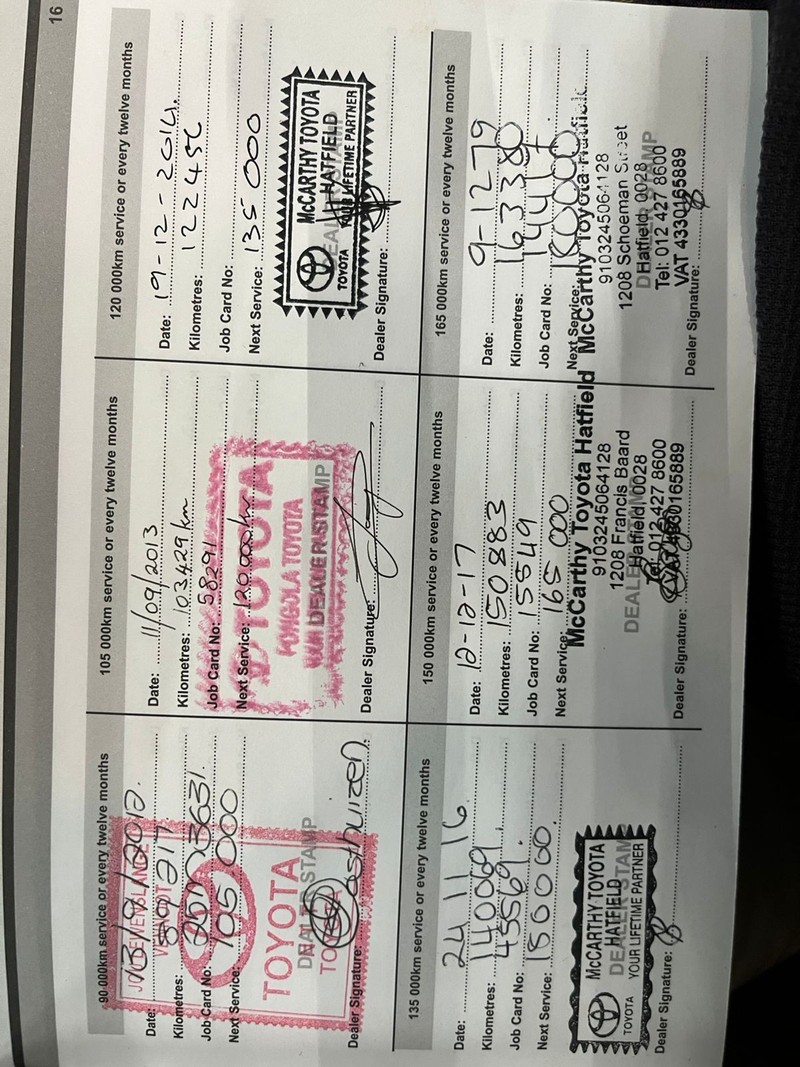 16
90 000km service or every twelve months
Date:
Kilometres: 89217
Job Card No:
Next Service: 105 000
TOYOTA
DEALER STAMP
Dealer Signature:
105 000km service or every twelve months
Date: 11/09/2013
Kilometres: 103429km
Job Card No: 58291
Next Service: 120000km
TOYOTA
PONGOLA TOYOTA
DEALER STAMP
Dealer Signature:
120 000km service or every twelve months
Date: 19-12-2014.
Kilometres: 122452
Job Card No:
Next Service: 135 000
TOYOTA
McCARTHY TOYOTA
HATFIELD
YOUR LIFETIME PARTNER
DEALER STAMP
Dealer Signature:
135 000km service or every twelve months
Date: 24 11 16
Kilometres: 140069.
Job Card No: 45569.
Next Service: 150000.
TOYOTA
McCARTHY TOYOTA
HATFIELD
DEALER STAMP
YOUR LIFETIME PARTNER
Dealer Signature:
150 000km service or every twelve months
Date: 12-12-17
Kilometres: 150883
Job Card No: 15549
Next Service: 165 000
McCarthy Toyota Hatfield
9103245064128
1208 Francis Baard
DEALER STAMP
Hatfield, 0028
Tel: 012 427 8600
VAT 4330165889
Dealer Signature:
165 000km service or every twelve months
Date: 9-1279
Kilometres: 163380
Job Card No:
Next Service: 180000
McCarthy Toyota Hatfield
9103245064128
1208 Schoeman Street
DEALER STAMP
Hatfield, 0028
Tel: 012 427 8600
VAT 4330165889
Dealer Signature: